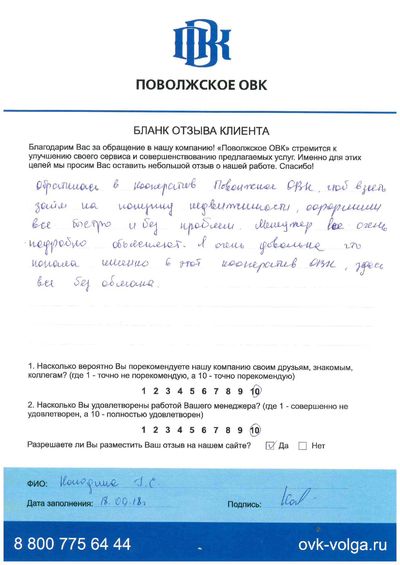 ОВК
ПОВОЛЖСКОЕ ОВК
БЛАНК ОТЗЫВА КЛИЕНТА
Благодарим Вас за обращение в нашу компанию! «Поволжское ОВК» стремится к
улучшению своего сервиса и совершенствованию предлагаемых услуг. Именно для этих
целей мы просим Вас оставить небольшой отзыв о нашей работе. Спасибо!
Обратилась в кооператив Поволжское ОВК, чтоб взять
займ на покупку недвижимости, оформили
все быстро и без проблем. Менеджер все очень
подробно объясняют. Я очень довольна что
попала именно в этот кооператив ОВК, здесь
все без обмана.
1. Насколько вероятно Вы порекомендуете нашу компанию своим друзьям, знакомым,
коллегам? (где 1 - точно не порекомендую, а 10 - точно порекомендую)
1 2 3 4 5 6 7 8 9 10
2. Насколько Вы удовлетворены работой Вашего менеджера? (где 1 - совершенно не
удовлетворен, а 10 - полностью удовлетворен)
1 2 3 4 5 6 7 8 9 10
Разрешаете ли Вы разместить Ваш отзыв на нашем сайте? Да Нет
ФИО:
Дата заполнения: 18.09.18г Подпись:
8 800 775 64 44 ovk-volga.ru